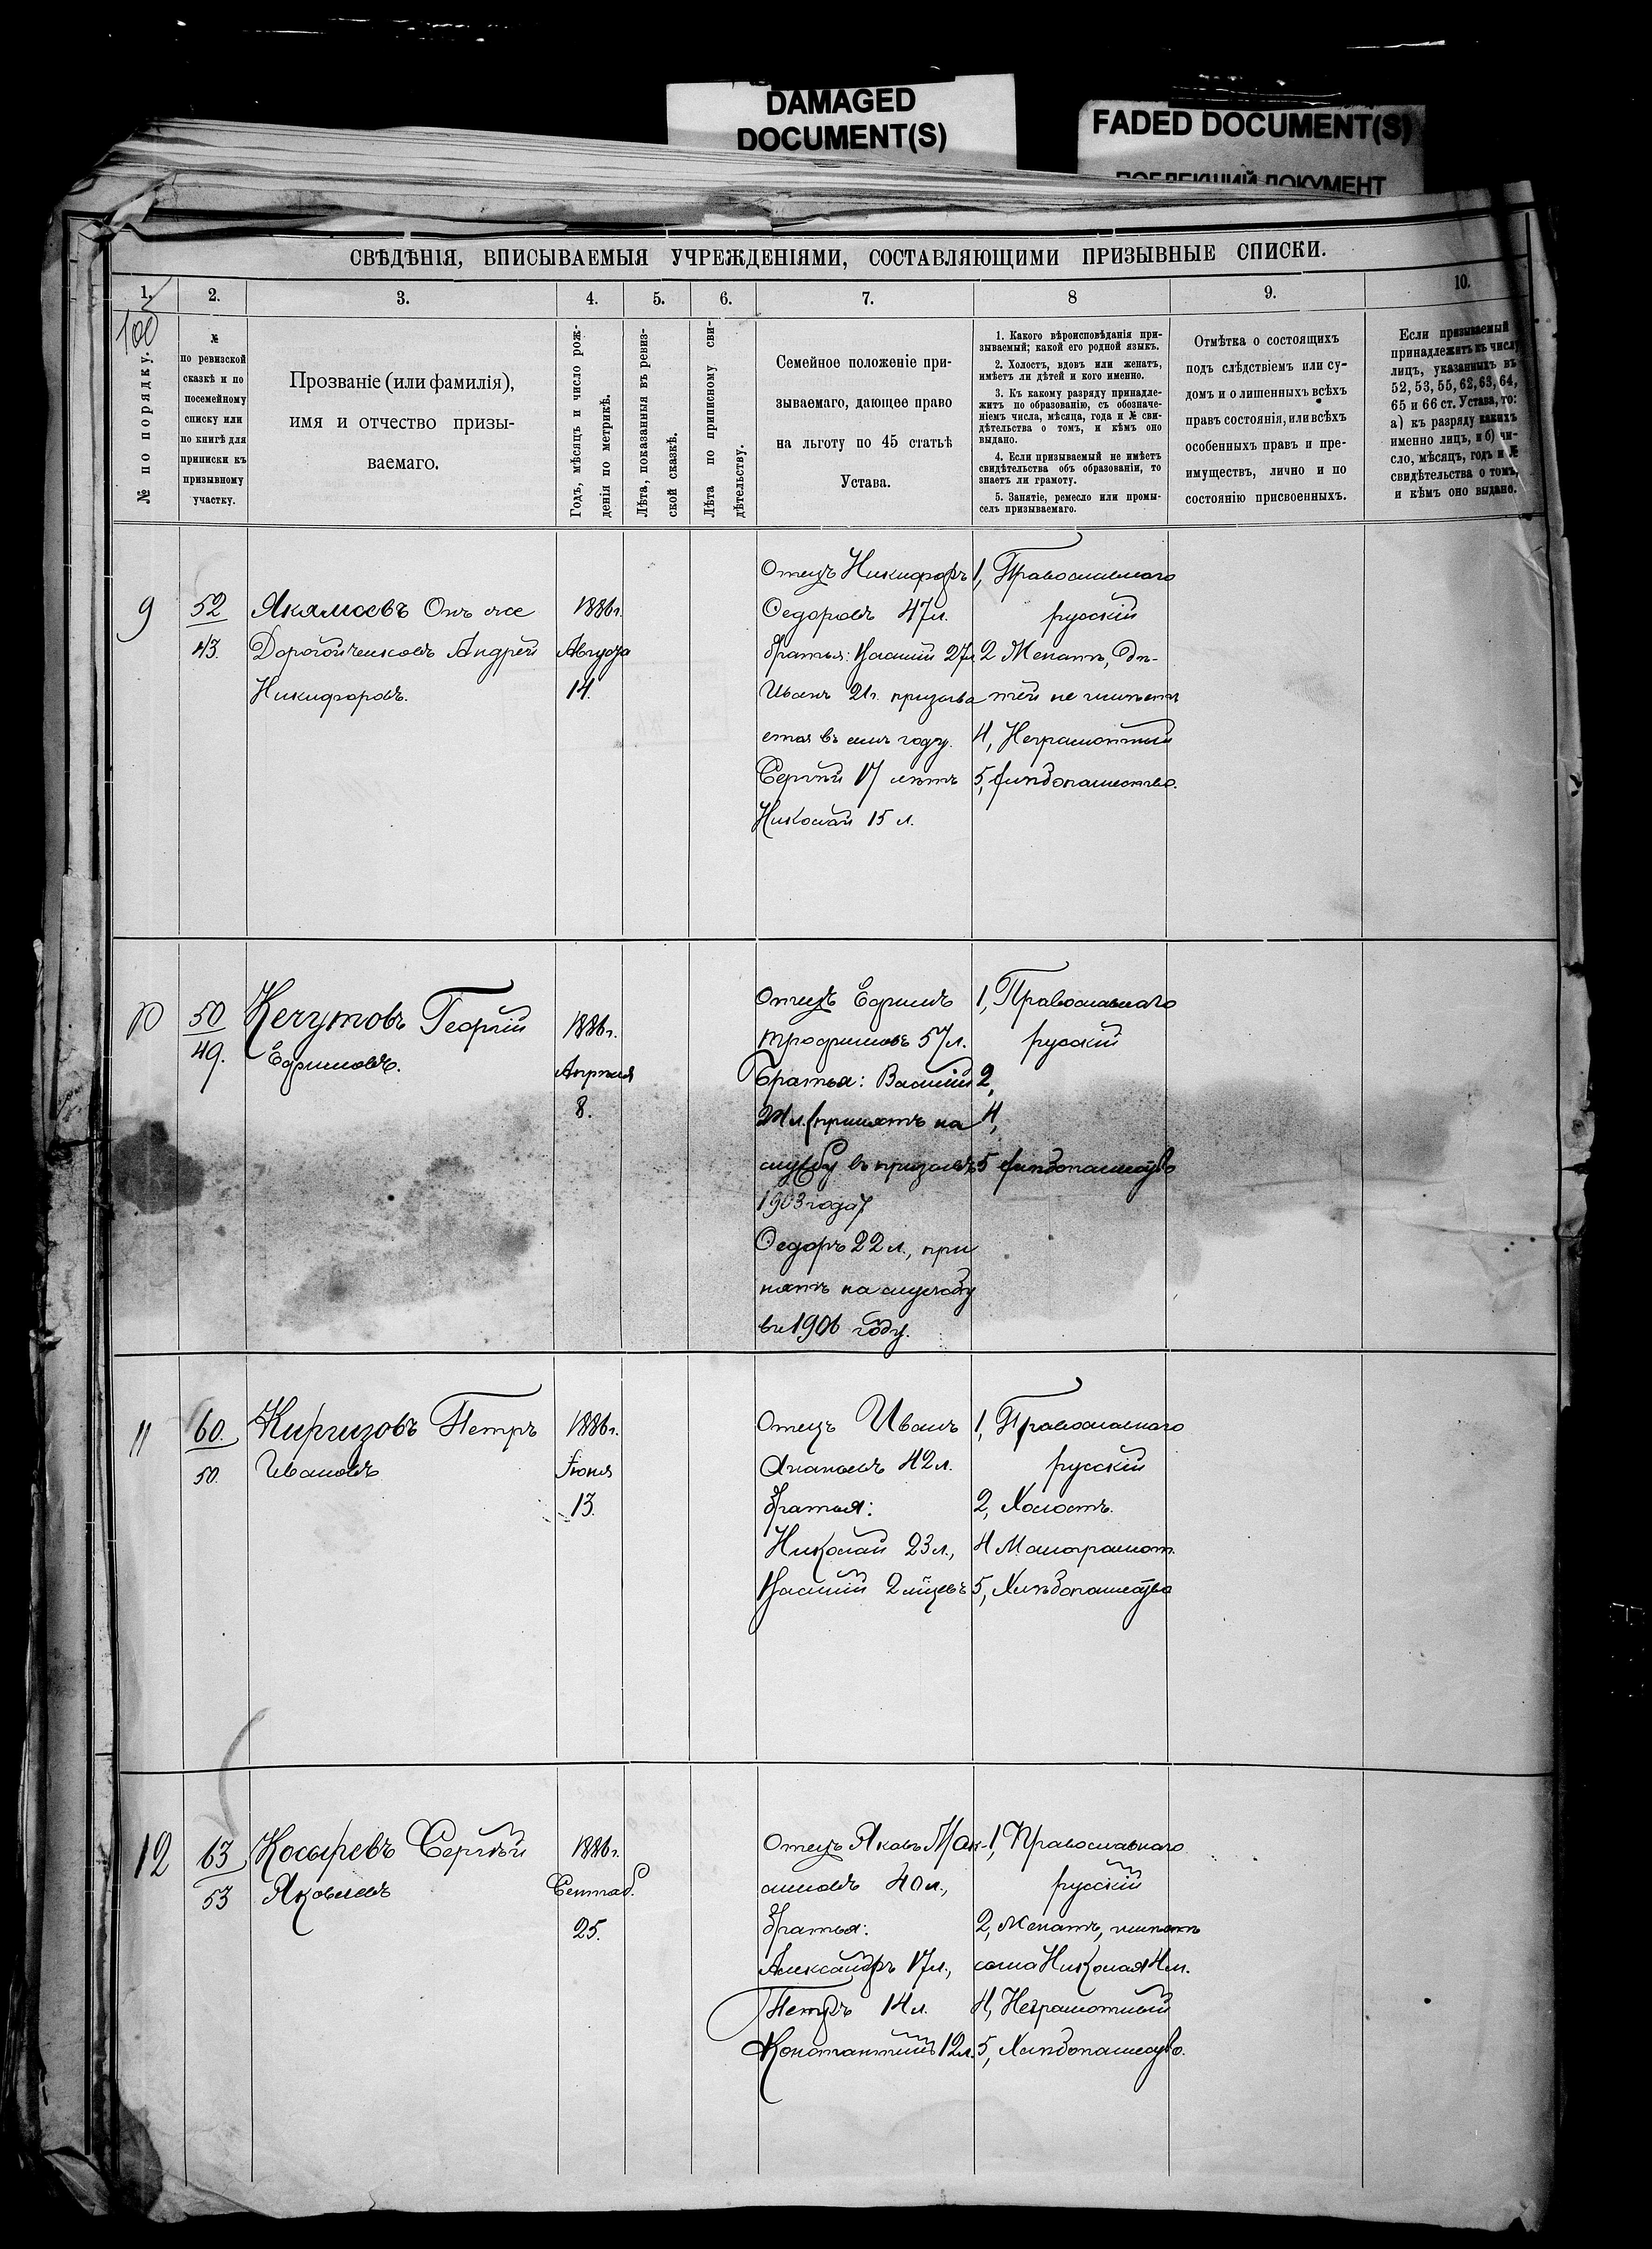 DAMAGED
DOCUMENT(S)
FADED DOCUMENT(S)
ПОБЛЕКШИЙ ДОКУМЕНТ
СВѢДѢНІЯ, ВПИСЫВАЕМЫЯ УЧРЕЖДЕНІЯМИ, СОСТАВЛЯЮЩИМИ ПРИЗЫВНЫЕ СПИСКИ.
1.
2.
3.
4.
5.
6.
7.
8
9.
10.
100
№ по порядку.
№
по ревизской
сказкѣ и по
посемейному
списку или
по книгѣ для
приписки къ
призывному
участку.
Прозваніе (или фамилія),
имя и отчество призы-
ваемаго.
Годъ, мѣсяцъ и число рож-
денія по метрикѣ.
Лѣта, показанныя въ ревиз-
ской сказкѣ.
Лѣта по приписному сви-
дѣтельству.
Семейное положеніе при-
зываемаго, дающее право
на льготу по 45 статьѣ
Устава.
1. Какого вѣроисповѣданія при-
зываемый; какой его родной языкъ.
2. Холостъ, вдовъ или женатъ,
имѣетъ ли дѣтей и кого именно.
3. Къ какому разряду принадле-
житъ по образованію, съ обозначе-
ніемъ числа, мѣсяца, года и № сви-
дѣтельства о томъ, и кѣмъ оно
выдано.
4. Если призываемый не имѣетъ
свидѣтельства объ образованіи, то
знаетъ ли грамоту.
5. Занятіе, ремесло или промы-
селъ призываемаго.
Отмѣтка о состоящихъ
подъ слѣдствіемъ или су-
домъ и о лишенныхъ всѣхъ
правъ состоянія, или всѣхъ
особенныхъ правъ и пре-
имуществъ, лично и по
состоянію присвоенныхъ.
Если призываемый
принадлежитъ къ числу
лицъ, указанныхъ въ
52, 53, 55, 62, 63, 64,
65 и 66 ст. Устава, то:
а) къ разряду какихъ
именно лицъ, и б) чи-
сло, мѣсяцъ, годъ и №
свидѣтельства о томъ,
и кѣмъ оно выдано.
9
52
43.
Онъ же
Андрей
Никифоровъ.
1886 г.
Августа
14.
Отецъ Никифоръ
Ѳедоровъ 47 л.
братья: Василій 27 л
Иванъ 21 г. призыва
ется въ семъ году.
Сергѣй 17 лѣтъ
Николай 15 л.
1, Православнаго
русскій
2 Женатъ, дѣ-
тей не имѣетъ
4, Неграмотный
5, хлѣбопашество.
10
50
49.
Кечутовъ Георгій
Ефимовъ.
1886 г.
Апрѣля
8.
Отецъ Ефимъ
Трофимовъ 57 л.
Братья: Василій
24 л. (принятъ на
службу въ призывъ
1903 года)
Ѳедоръ 22 л., при
нятъ на службу
въ 1906 году.
1, Православнаго
русскій
2,
4,
5 хлѣбопашество
11
60.
50.
Киргизовъ Петръ
Ивановъ
1886 г.
Іюня
13.
Отецъ Иванъ
42 л.
братья:
Николай 23 л.,
Василій
1, Православнаго
русскій
2, Холостъ.
4 Малограмот.
5, Хлѣбопашество
12
63
53
Косыревъ Сергѣй
Яковлевъ
1886 г.
Сентяб.
25.
Отецъ Яковъ Мак-
симовъ 40 л.,
братья:
Александръ 17 л.,
Петръ 14 л.
Константинъ 12 л.
1, Православнаго
русскій
2, Женатъ, имѣетъ
сына Николая 4 м.
4, Неграмотный
5, Хлѣбопашество.